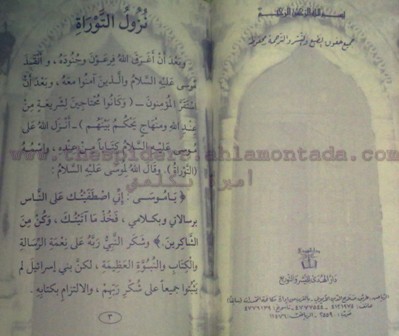 بسم الله الرحمن الرحيم
جميع حقوق الطبع والنشر والترجمة محفوظة
دار الهدى للنشر والتوزيع
نُزُولُ التَّوْرَاةِ
وَبَعْدَ أَنْ أَغْرَقَ اللهُ فِرْعَوْنَ وَجُنُودَهُ، وَأَنْقَذَ
مُوسَى عَلَيْهِ السَّلَامُ وَالَّذِينَ آمَنُوا مَعَهُ، وَبَعْدَ أَنْ
اسْتَقَرَّ الْمُؤْمِنُونَ – (وَكَانُوا مُحْتَاجِينَ لِشَرِيعَةٍ مِنْ
عِنْدِ اللهِ وَمِنْهَاجٍ يَحْكُمُ بَيْنَهُمْ) – أَنْزَلَ اللهُ عَلَى
مُوسَى عَلَيْهِ السَّلَامُ كِتَابًا مِنْ عِنْدِهِ، وَاسْمُهُ
(التَّوْرَاةُ). وَقَالَ اللهُ لِمُوسَى عَلَيْهِ السَّلَامُ:
﴿يَا مُوسَى: إِنِّي اصْطَفَيْتُكَ عَلَى النَّاسِ
بِرِسَالَاتِي وَبِكَلَامِي، فَخُذْ مَا آتَيْتُكَ، وَكُنْ مِنَ
الشَّاكِرِينَ﴾ وَشَكَرَ النَّبِيُّ رَبَّهُ عَلَى نِعْمَةِ الرِّسَالَةِ
وَالْكِتَابِ وَالنُّبُوَّةِ الْعَظِيمَةِ، لَكِنَّ بَنِي إِسْرَائِيلَ لَمْ
يَثْبُتُوا جَمِيعًا عَلَى شُكْرِ رَبِّهِمْ، وَالِالْتِزَامِ بِكِتَابِهِ.
٣
www.thespiders.ahlamontada.com